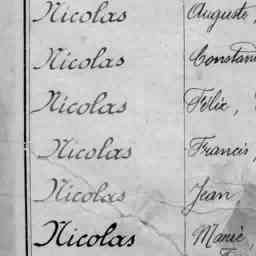 Nicolas Auguste,
Nicolas
Nicolas Félix,
Nicolas Francis,
Nicolas Jean
Nicolas Marie,